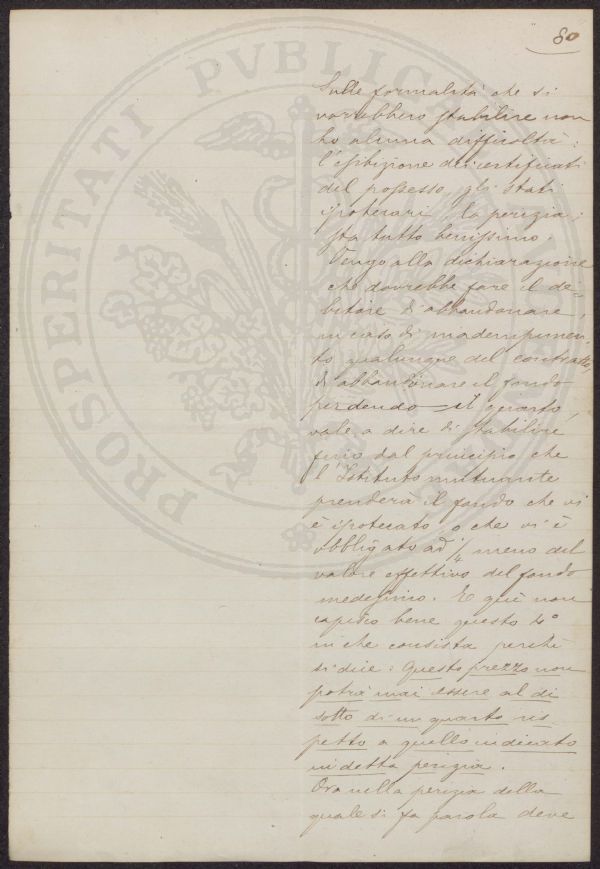 80
Sulle formalità che si
vorrebbero stabilire non
ho alcuna difficoltà:
l'esibizione dei certificati
del possesso, gli stati
ipotecari la perizia;
sta tutto benissimo.
Vengo alla dichiarazione
che dovrebbe fare il de-
bitore d'abbandonare,
in caso di inadempimen-
to qualunque del contratto,
d'abbandonare il fondo
perdendo il quarto,
vale a dire di stabilire
fino dal principio che
l'Istituto mutuante
prenderà il fondo che vi
è ipotecato o che vi è
obbligato ad 1/4 meno del
valore effettivo del fondo
medesimo. E qui non
capisco bene questo 4º
in che consista perchè
si dice: Questo prezzo non
potrà mai essere al di
sotto di un quarto ris-
petto a quello indicato
in detta perizia.
Ora nella perizia della
quale si fa parola deve
PROSPERITATI PVBLICAE